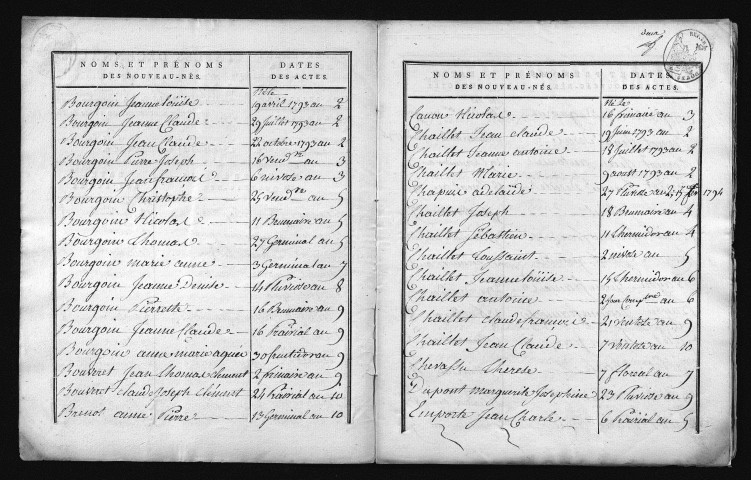 NOMS ET PRÉNOMS DATES
DES NOUVEAU-NÉS. DES ACTES.
Bourgoin Jeanne Loüise 19 avril 1793 an 2
Bourgoin Jeanne Claude 29 Juillet 1793 an 2
Bourgoin Jean Claude 22 octobre 1793 an 2
Bourgoin Pierre Joseph 16 vend.re an 3
Bourgoin Jean francois 6 nivose an 3
Bourgoin Christophe 25 vend.re an 5
Bourgoin Nicolas 11 Brumaire an 5
Bourgoin Thomas 27 Germinal an 5
Bourgoin marie anne 3 Germinal an 7
Bourgoin Jeanne Denise 14 Pluviose an 8
Bourgoin Pierrette 16 Brumaire an 9
Bourgoin Jeanne Claude 16 Prairial an 9
Bourgoin anne marie 30 fructidor an 9
Bouveret Jean Thomas Clement 2 frimaire an 9
Bouveret Claude Joseph Clement 24 Prairial an 10
Brenot anne Pierre 13 Germinal an 10
NOMS ET PRÉNOMS DATES
DES NOUVEAU-NÉS. DES ACTES.
Nicolas 16 frimaire an 3
Chaillet Jean Claude 19 Juin 1793 an 2
Chaillet Jeanne antoine 18 Juillet 1793 an 2
Chaillet Marie 9 aoust 1793 an 2
Chapuis adelaïde 27 Pluviose an 2 1794
Chaillet Joseph 18 Brumaire an 4
Chaillet Sébastien 11 Thermidor an 4
Chaillet Toussaint 2 nivose an 5
Chaillet Jeanne Loüise 15 Thermidor an 6
Chaillet antoine 2 an 6
Chaillet Claude francois 21 ventose an 9
Chaillet Jean Claude 7 ventose an 10
Therese 7 floreal an 7
Dupont marguerite Josephine 23 Pluviose an 9
Emporte Jean Charle 6 Prairial an 5